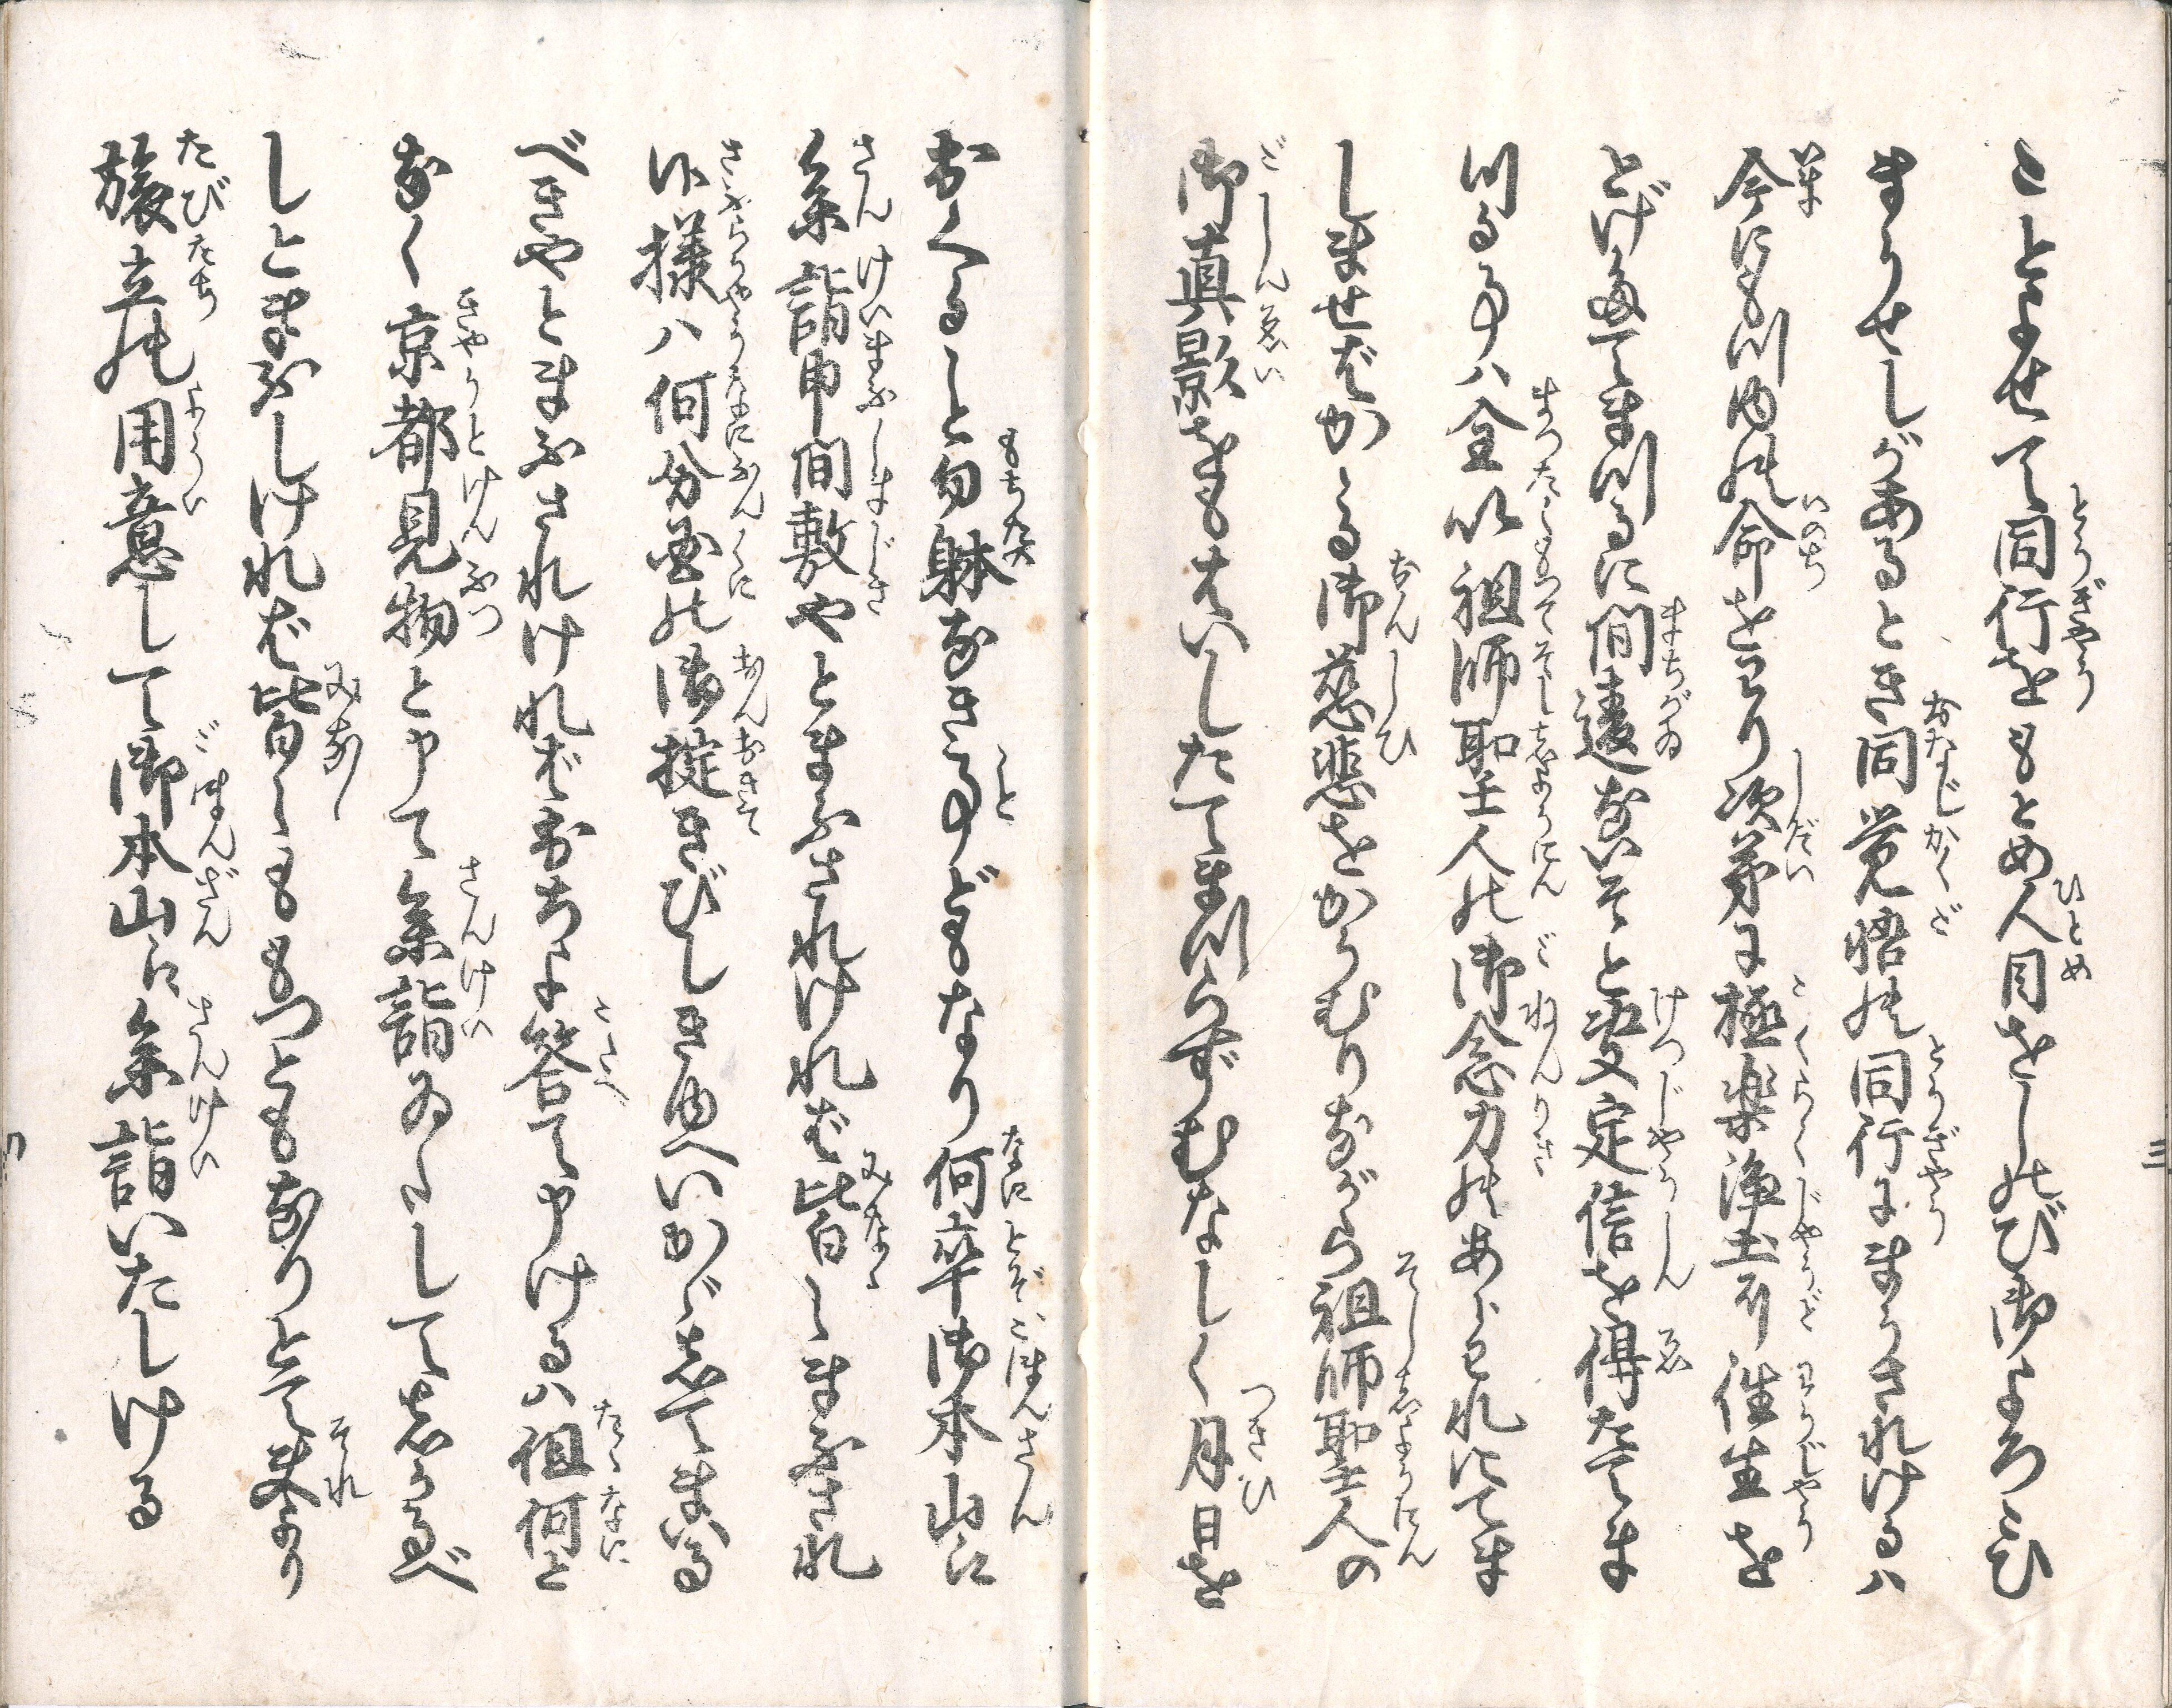 ことよせて同行をもとめ人目をしのび御よろこび
まうせしがあるとき同覚悟の同行にまうされけるハ
今にもつゆの命をわり次第に極楽浄土に往生を
とげ奉てまつるに間違ないぞと决定信を得たてま
つる事ハ全以祖師聖人の御念力のあらわれにてま
しませばかゝる御慈悲をかうむりながら祖師聖人の
御真影をもはいしたてまつらずむなしく月日を
おくるしと勿躰なき事どもなり何卒御本山に
参詣申間敷やとまふされければ皆々まふされ
候様ハ何分国の御掟きびしきゆへいかゞしてまいる
べきやとまふされければおちよ答て申けるハ祖何と
なく京都見物と申て参詣ゐたしてしかるべ
しとまふしければ皆々ももつともなりとて夫より
旅立の用意して御本山に参詣いたしける
三